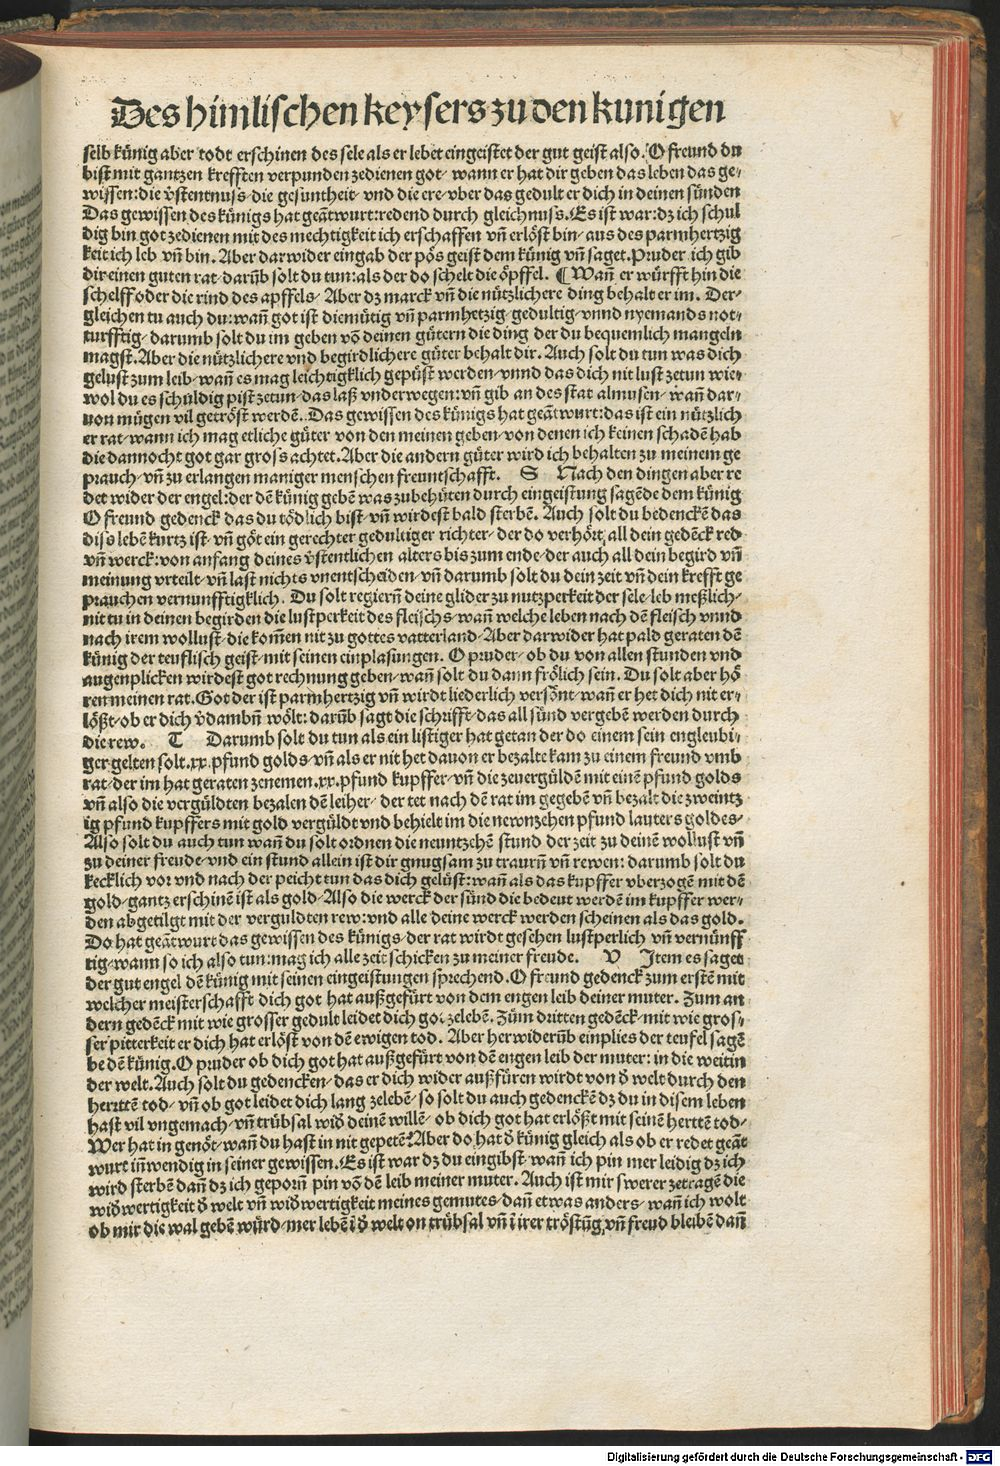 Des himlischen keysers zu den kunigen
selb künig aber todt erschinen des sele als er lebet eingeistet der gut geist also. O freund du
bist mit gantzen krefften verpunden zedienen got/ wann er hat dir geben das leben das ge/
wissen: die v̊stentnuss/ die gesuntheit/ vnd die ere/ vber das gedult er dich in deinen sünden
Das gewissen des künigs hat geãtwurt: redend durch gleichnuss. Es ist war: dz ich schul
dig bin got zedienen mit des mechtigkeit ich erschaffen vñ erlöst bin/ aus des parmhertzig
keit ich leb vñ bin. Aber darwider eingab der pös geist dem künig vñ saget. Pruder ich gib
dir einen guten rat/ darũb solt du tun: als der do schelt die öpffel. ¶ Wañ er würfft hin die
schelff oder die rind des apffels/ Aber dz marck vñ die nützlichere ding behalt er im. Der/
gleichen tu auch du: wañ got ist diemütig vñ parmhetzig/ gedultig/ vnnd nyemands not/
turfftig/ darumb solt du im geben võ deinen gütern die ding der du bequemlich mangeln
magst. Aber die nützlichere vnd begirdlichere güter behalt dir. Auch solt du tun was dich
gelust zum leib/ wañ es mag leichtigklich gepüst werden/ vnnd das dich nit lust zetun wie/
wol du es schuldig pist zetun/ das laß vnderwegen: vñ gib an des stat almusen/ wañ dar/
von mügen vil getröst werdẽ. Das gewissen des künigs hat geãtwurt: das ist ein nützlich
er rat/ wann ich mag etliche güter von den meinen geben/ von denen ich keinen schadẽ hab
die dannocht got gar gross achtet. Aber die andern güter wird ich behalten zu meinem ge
prauch/ vñ zu erlangen maniger menschen freuntschafft. S Nach den dingen aber re
det wider der engel: der dẽ künig gebẽ was zubehüten durch eingeistung sagẽde dem künig
O freund gedenck das du tödlich bist/ vñ wirdest bald sterbẽ. Auch solt du bedenckẽ das
diss lebẽ kurtz ist/ vñ göt ein gerechter gedultiger richter/ der do verhört all dein gedẽck red
vñ werck: von anfang deines v̊stentlichen alters bis zum ende/ der auch all dein begird vñ
meinung vrteilt/ vñ last nichts vnentscheiden/ vñ darumb solt du dein zeit vñ dein krefft ge
prauchen vernunfftigklich. Du solt regierñ deine glider zu nutzperkeit der sele/ leb meßlich/
nit tu in deinen begirden die lustperkeit des fleischs/ wañ welche leben nach dẽ fleisch vnnd
nach irem wollust/ die kom̃en nit zu gottes vatterland/ Aber darwider hat pald geraten dẽ
künig der teuflisch geist/ mit seinen einplasungen. O pruder/ ob du von allen stunden vnd
augenplicken wirdest got rechnung geben/ wañ solt du dann frölich sein. Du solt aber hö
ren meinen rat. Got der ist parmhertzig vñ wirdt liederlich versönt/ wañ er het dich nit er/
lößt/ ob er dich v̊dambñ wölt: darũb sagt die schrifft/ das all sünd vergebẽ werden durch
die rew. T Darumb solt du tun als ein listiger hat getan der do einem sein engleubi/
ger gelten solt .xx. pfund golds/ vñ als er nit het dauon er bezalte kam zu einem freund vmb
rat/ der im hat geraten zenemen .xx. pfund kupffer/ vñ die zeuergüldẽ mit einẽ pfund golds
vñ also die vergüldten bezalen dẽ leiher/ der tet nach dẽ rat im gegebẽ vñ bezalt die zweintz
ig pfund kupffers mit gold vergüldt vnd behielt im die newnzehen pfund lauters goldes/
Also solt du auch tun wañ du solt ordnen die neuntzehẽ stund der zeit zu deinẽ wollust vñ
zu deiner freude/ vnd ein stund allein ist dir gnugsam zu traurñ vñ rewen: darumb solt du
kecklich vor vnd nach der peicht tun das dich gelüst: wañ als das kupffer vberzogẽ mit dẽ
gold/ gantz erschinẽ ist als gold/ Also die werck der sünd die bedeut werdẽ im kupffer wer/
den abgetilgt mit der verguldten rew: vnd alle deine werck werden scheinen als das gold.
Do hat geãtwurt das gewissen des künigs/ der rat wirdt gesehen lustperlich vñ vernünff
tig/ wann so ich also tun: mag ich alle zeit schicken zu meiner freude. V Item es saget
der gut engel dẽ künig mit seinen eingeistungen sprechend. O freund gedenck zum erstẽ mit
welcher meisterschafft dich got hat außgefürt von dem engen leib deiner muter. Zum an
dern gedẽck mit wie grosser gedult leidet dich got zelebẽ. Züm dritten gedẽck/ mit wie gros/
ser pitterkeit er dich hat erlöst von dẽ ewigen tod. Aber herwiderũb einplies der teufel sagẽ
be dẽ künig. O pruder ob dich got hat außgefürt von dẽ engen leib der muter: in die weitin
der welt. Auch solt du gedencken/ das er dich wider außfüren wirdt von d̊ welt durch den
herttẽ tod/ vñ ob got leidet dich lang zelebẽ/ so solt du auch gedenckẽ dz du in disem leben
hast vil vngemach/ vñ trübsal wid̊ deinẽ willẽ/ ob dich got hat erlößt mit seinẽ herttẽ tod/
Wer hat in genöt/ wañ du hast in nit gepetẽ? Aber do hat d̊ künig gleich als ob er redet geãt
wurt iñwendig in seiner gewissen. Es ist war dz du eingibst/ wañ ich pin mer leidig dz ich
wird sterbẽ dañ dz ich geporñ pin võ dẽ leib meiner muter. Auch ist mir swerer zetragẽ die
wid̊wertigkeit d̊ welt vñ wid̊wertigkeit meines gemutes/ dañ etwas anders/ wañ ich wolt
ob mir die wal gebẽ würd/ mer lebẽ ĩ d̊ welt on trübsal vñ ĩ irer tröstũg vñ freud bleibẽ dañ
Digitalisierung gefördert durch die Deutsche Forschungsgemeinschaft - DFG